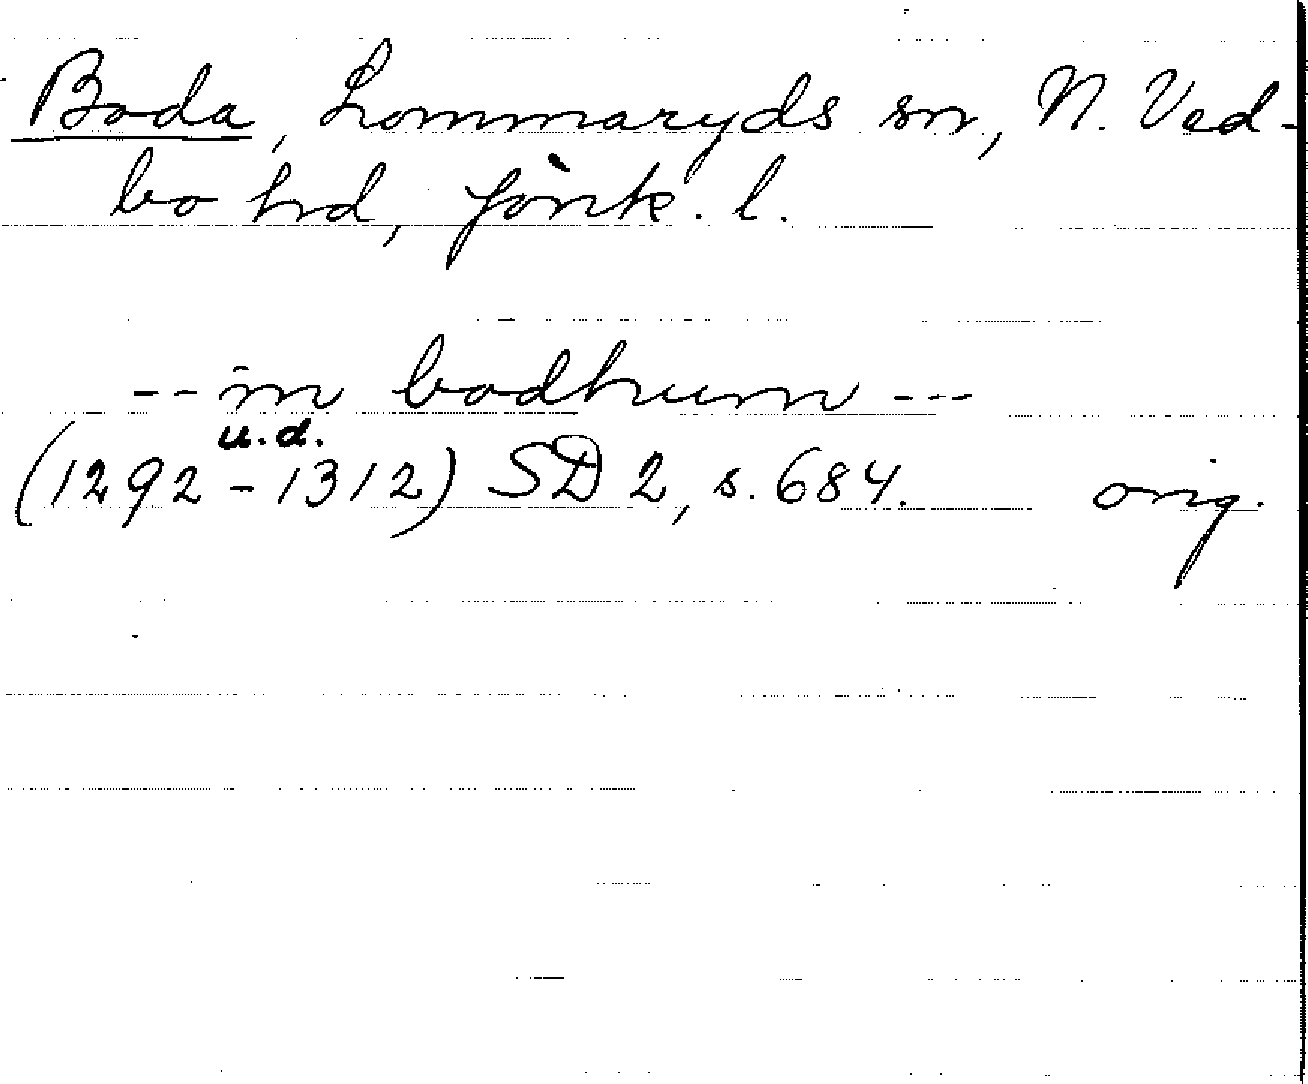 Boda, Lommaryds sn, N. Ved-
bo hd, Jönk. l.
-- in bodhum ---
u.d.
(1292-1312) SD 2, s. 684. orig.